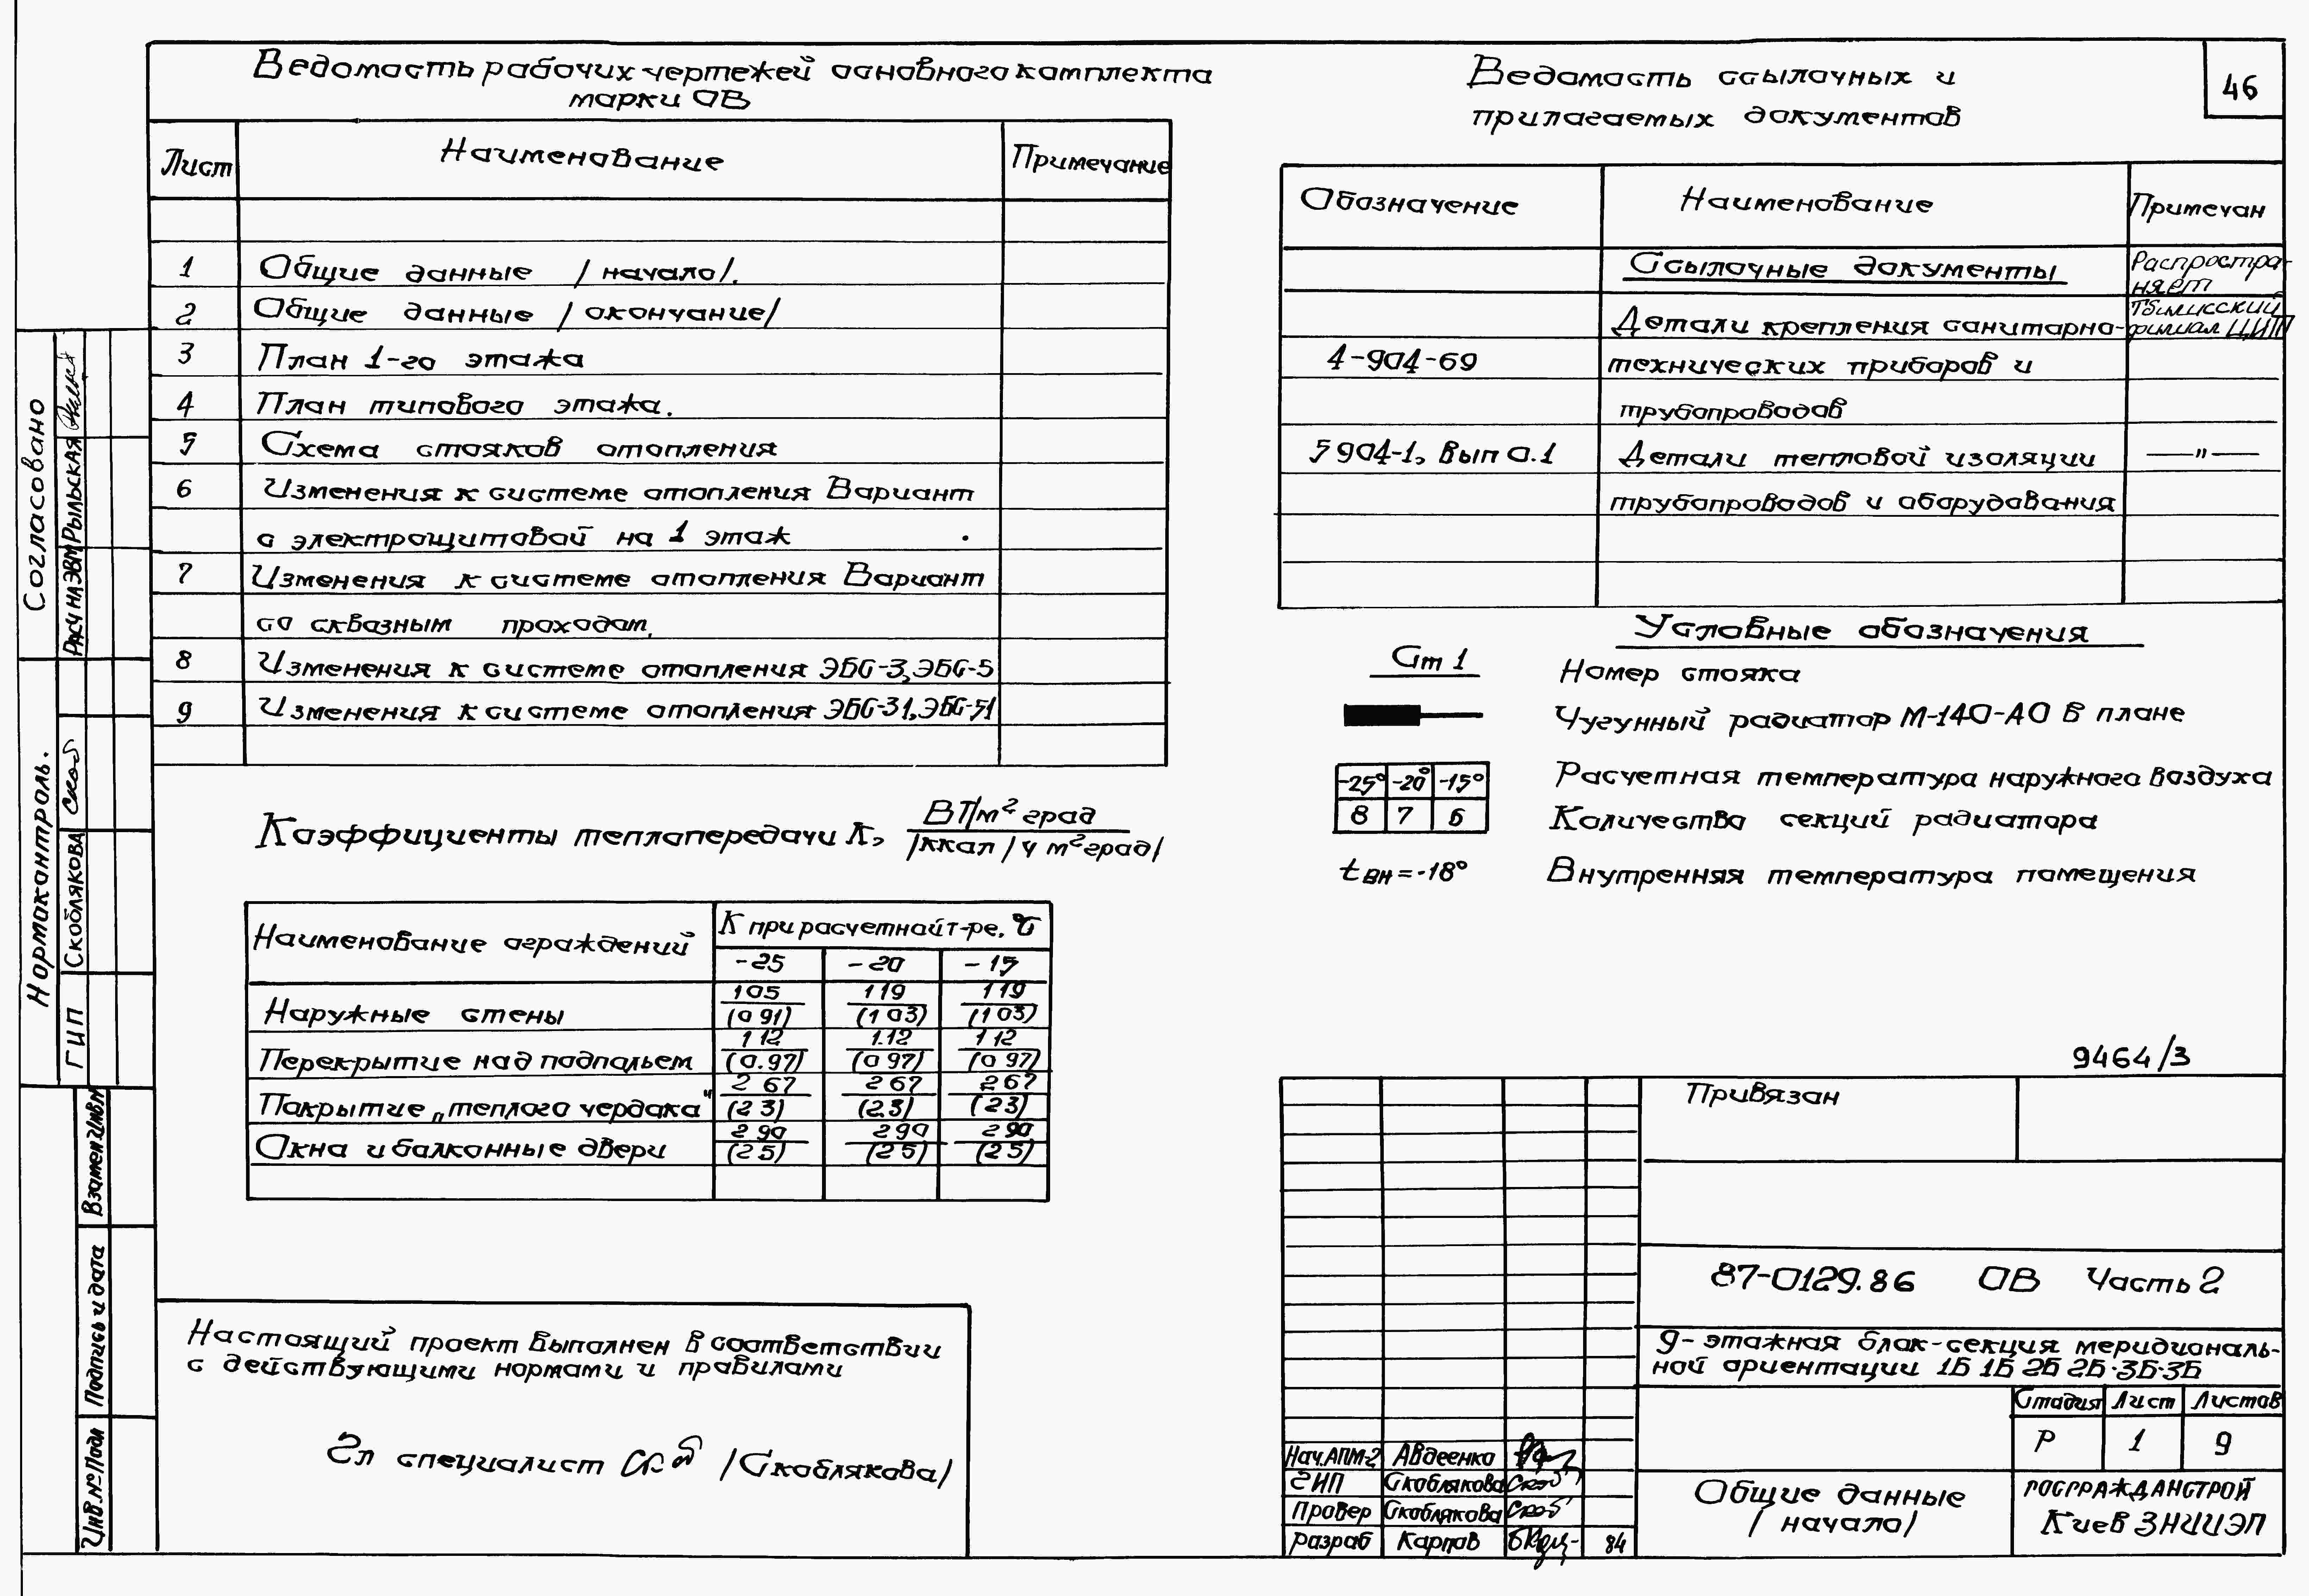 46
Ведомость рабочих чертежей основного комплекта
марки ОВ
Лист Наименование Примечание
1 Общие данные /начало/.
2 Общие данные /окончание/
3 План 1-го этажа
4 План типового этажа.
5 Схема стояков отопления
6 Изменения к системе отопления Вариант
с электрощитовой на 1 этаж
7 Изменения к системе отопления Вариант
со сквозным проходом.
8 Изменения к системе отопления ЭБС-3, ЭБС-5
9 Изменения к системе отопления ЭБС-31, ЭБС-51
Коэффициенты теплопередачи К, ВТ/м² град
/ккал/ч м² град/
Наименование ограждений К при расчетной т-ре, °С
-25 -20 -15
Наружные стены 105 119 119
(0 91) (1 03) (1 03)
Перекрытие над подпольем 1 12 1.12 1 12
(0.97) (0 97) (0 97)
Покрытие „теплого чердака" 2 67 2 67 2 67
(2 3) (2.3) (2 3)
Окна и балконные двери 2 90 2 90 2 90
(2 5) (2 5) (2 5)
Настоящий проект выполнен в соответствии
с действующими нормами и правилами
Гл специалист /Скоблякова/
Ведомость ссылочных и
прилагаемых документов
Обозначение Наименование Примечан
Ссылочные документы Распростра-
няет
Детали крепления санитарно- Тбилисский
филиал ЦИТП
4-904-69 технических приборов и
трубопроводов
5 904-1, Вып 0.1 Детали тепловой изоляции —"—
трубопроводов и оборудования
Условные обозначения
Ст 1 Номер стояка
Чугунный радиатор М-140-АО в плане
-25° -20° -15° Расчетная температура наружного воздуха
8 7 6 Количество секций радиатора
tвн=-18° Внутренняя температура помещения
9464/3
Привязан
87-0129.86 ОВ Часть 2
9-этажная блок-секция меридиональ-
ной ориентации 1Б 1Б 2Б 2Б·3Б·3Б
Стадия Лист Листов
Р 1 9
Нач.АПМ-2 Авдеенко
ГИП Скоблякова
Провер Скоблякова
Разраб Карпов 84
Общие данные
/начало/
ГОСГРАЖДАНСТРОЙ
Киев ЗНИИЭП
Согласовано
Расч на ЭВМ Рыльская
Нормоконтроль.
ГИП Скоблякова
Взамен Инв №
Подпись и дата
Инв. № Подл